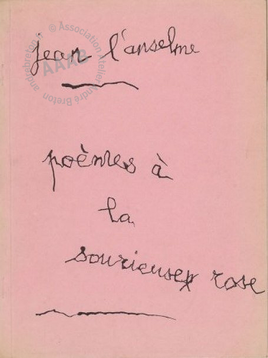 jean l'anselme
poèmes à
la
sourieuse rose
© Association Atelier André Breton
AAAB